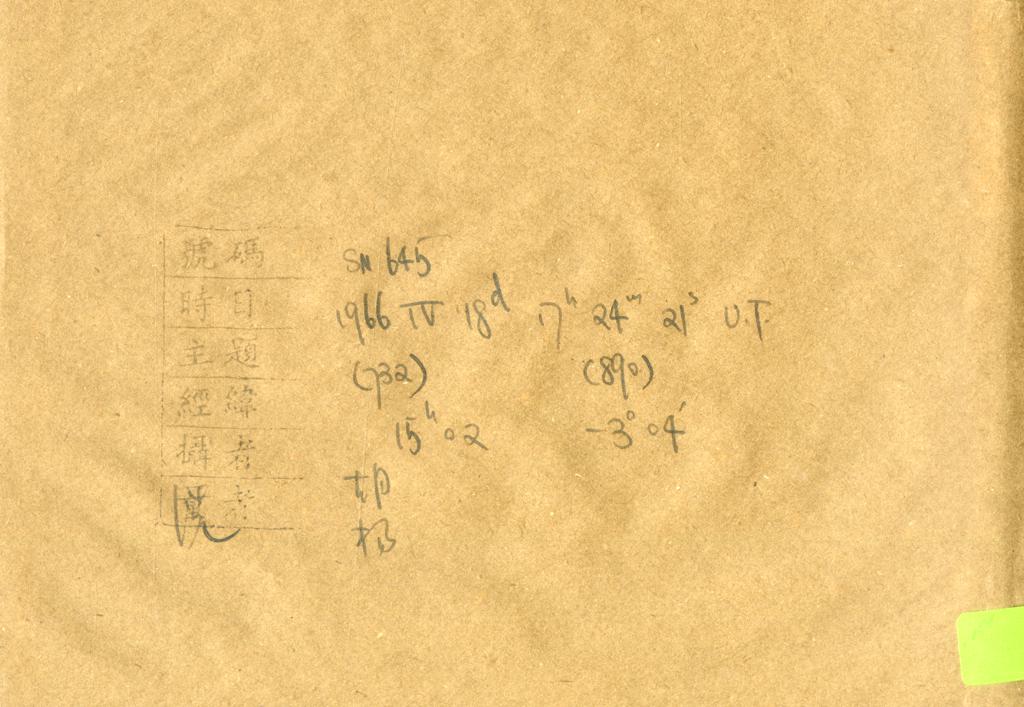 號碼 SN 645
時日 1966 IV 18d 17h 24m 21s U.T.
主題 (732) (890)
經緯 15h02 -3°04'
攝者 胡
者 杨